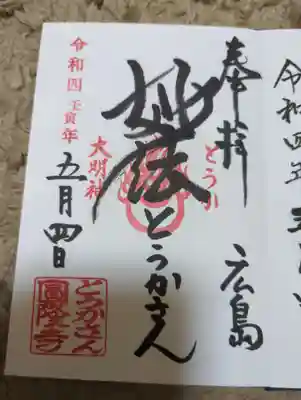 奉拝 広島
とうか
妙法
とうかさん
大明神
令和四壬寅年
五月四日
とうかさん
圓隆寺